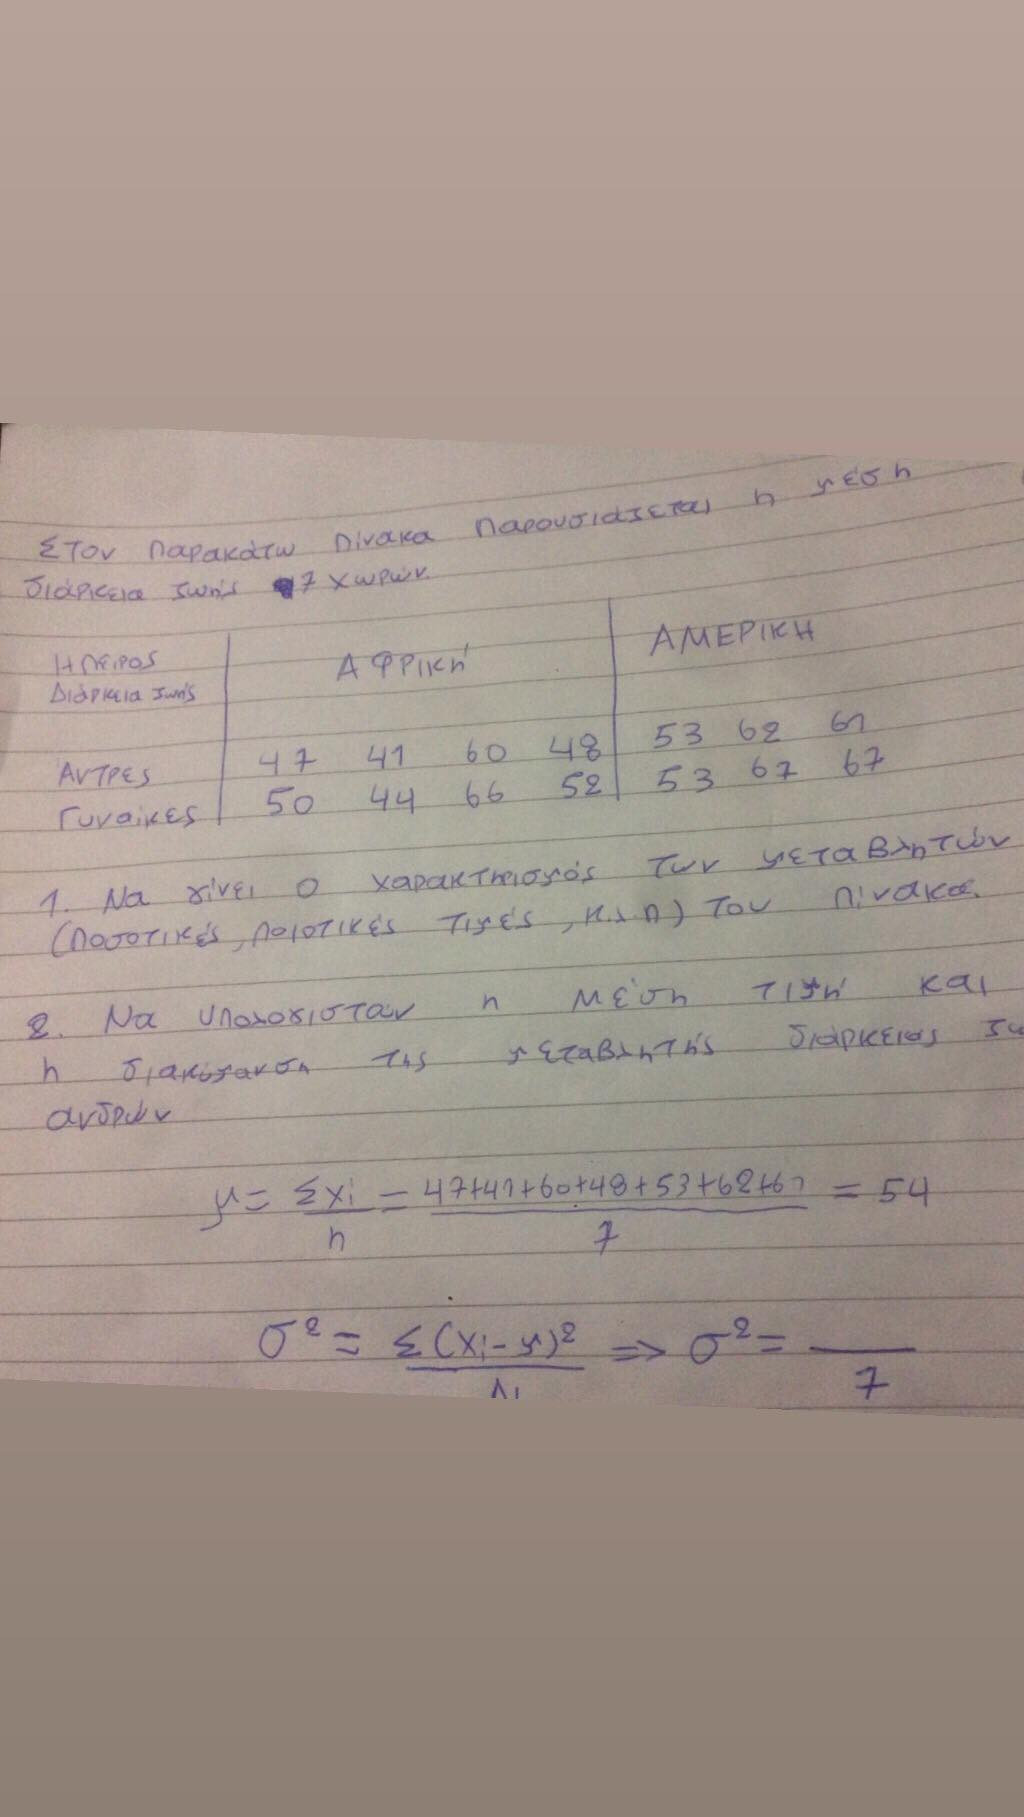 Στον παρακάτω πίνακα παρουσιάζεται η μέση
διάρκεια ζωής 7 χωρών.
Ήπειρος ΑΦΡΙΚή ΑΜΕΡΙΚΗ
Διάρκεια ζωής
ΑΝΤΡΕΣ 47 41 60 48 53 62 61
Γυναίκες 50 44 66 52 53 67 67
1. Να γίνει ο χαρακτηρισμός των μεταβλητών
(ποσοτικές, ποιοτικές τιμές, κ.λ.π) του πίνακα.
2. Να υπολογιστούν η μέση τιμή και
η διακύμανση της μεταβλητής διάρκειας ζω
ανδρών
μ = Σxi/n = 47+41+60+48+53+62+61/7 = 54
σ² = Σ(xi-μ)²/Ν => σ² = /7